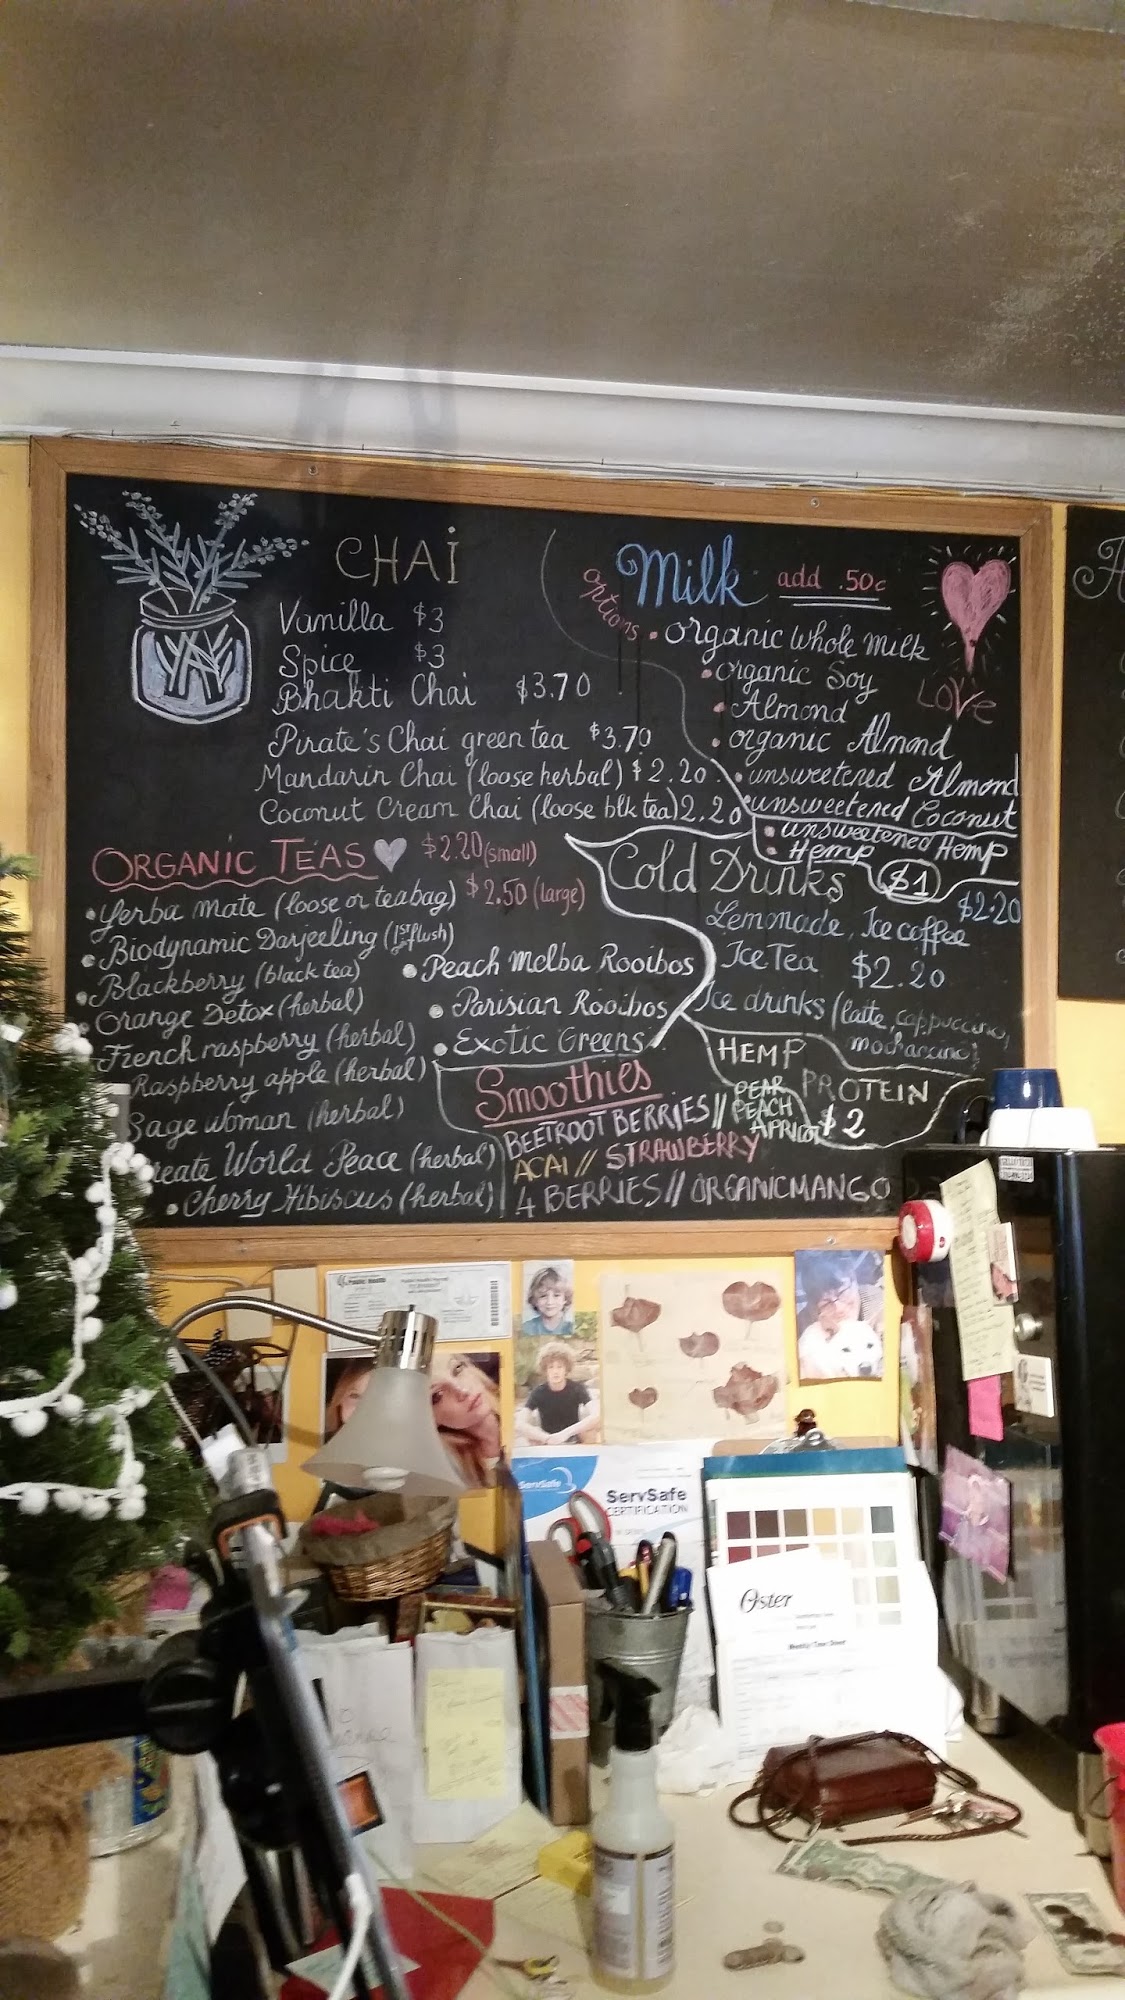 CHAi
Vanilla $3
Spice $3
Bhakti Chai $3.70
Pirate's Chai green tea $3.70
Mandarin Chai (loose herbal) $2.20
Coconut Cream Chai (loose blk tea) 2.20
Milk add .50c
options
• organic whole milk
• organic Soy
• Almond
• organic Almond
• unsweetened Almond
• unsweetened Coconut
• unsweetened Hemp
• Hemp $1
LOVe
ORGANIC TEAS $2.20 (small)
$2.50 (large)
• Yerba mate (loose or teabag)
• Biodynamic Darjeeling (1st flush)
• Blackberry (black tea)
• Orange Detox (herbal)
French raspberry (herbal)
Raspberry apple (herbal)
Sage woman (herbal)
reate World Peace (herbal)
• Cherry Hibiscus (herbal)
• Peach Melba Rooibos
• Parisian Rooibos
• Exotic Greens
Cold Drinks
Lemonade, Ice coffee $2.20
Ice Tea $2.20
Ice drinks (latte, cappuccino,
mochaccino)
HEMP PROTEIN $2
Smoothies
BEETROOT BERRIES // PEAR
PEACH
APRICOT
ACAi // STRAWBERRY
4 BERRIES // ORGANIC MANGO
ServSafe
ServSafe
CERTIFICATION
Oster